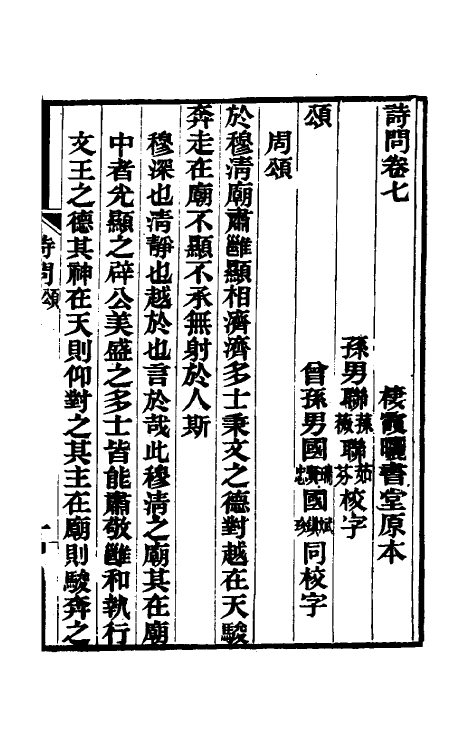 詩問卷七
棲霞曬書堂原本
孫男聯蓀薇聯茹芬校字
頌
曾孫男國國同校字
周頌
於穆清廟肅雝顯相濟濟多士秉文之德對越在天駿
奔走在廟不顯不承無射於人斯
穆深也清靜也越於也言於哉此穆清之廟其在廟
中者光顯之辟公美盛之多士皆能肅敬雝和執行
文王之德其神在天則仰對之其主在廟則駿奔之
詩問頌
一